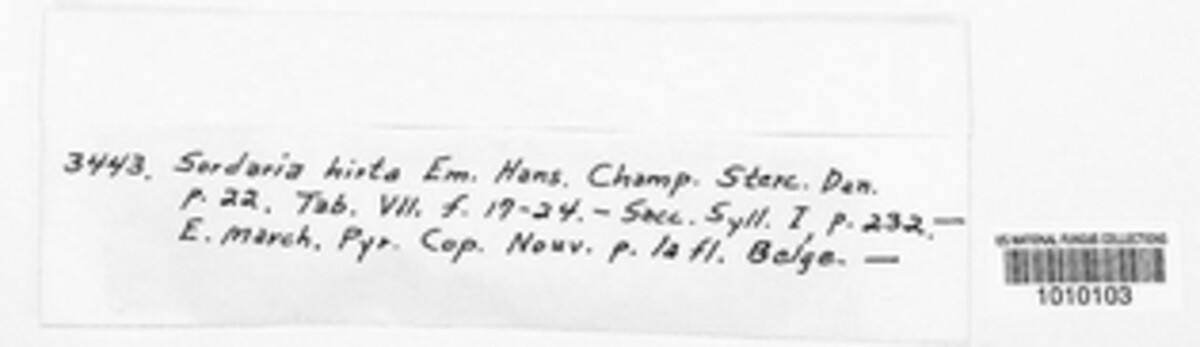 3443. Sordaria hirta Em. Hans. Champ. Sterc. Dan.
p. 22. Tab. VII. f. 17-24. - Sacc. Syll. I, p. 232. —
E. March. Pyr. Cop. Nouv. p. la fl. Belge. —
US NATIONAL FUNGUS COLLECTIONS
1010103